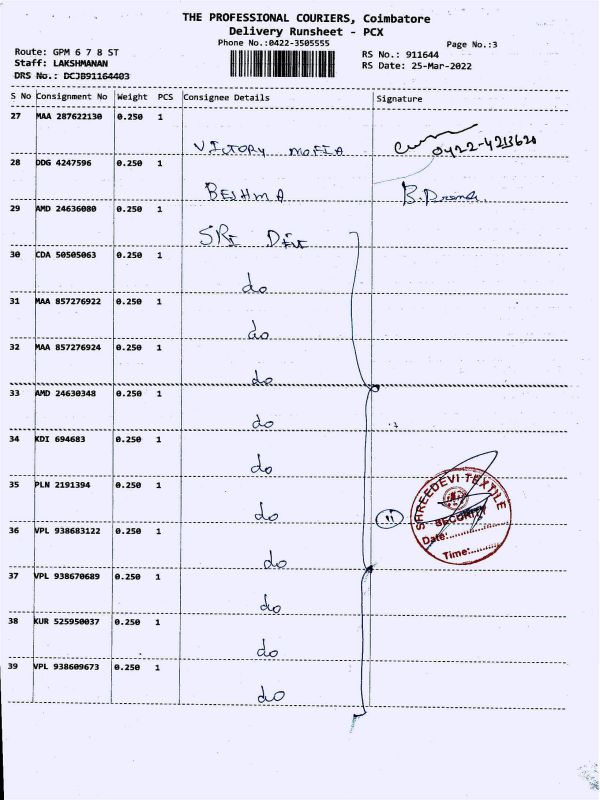 THE PROFESSIONAL COURIERS, Coimbatore
Delivery Runsheet - PCX
Phone No.:0422-3505555
Page No.:3
Route: GPM 6 7 8 ST
Staff: LAKSHMANAN
DRS No.: DCJB91164403
RS No.: 911644
RS Date: 25-Mar-2022
S No Consignment No Weight PCS Consignee Details Signature
27 MAA 287622130 0.250 1
VICTORY MOFIA
0422-4213620
28 DDG 4247596 0.250 1
BESHMA B.
29 AMD 24636080 0.250 1
SRI DEVI
30 CDA 50505063 0.250 1
do
31 MAA 857276922 0.250 1
do
32 MAA 857276924 0.250 1
do
33 AMD 24630348 0.250 1
do
34 KDI 694683 0.250 1
do
35 PLN 2191394 0.250 1
do
11
SHREEDEVI TEXTILE
SECURITY
Date:..................
Time:.........
36 VPL 938683122 0.250 1
do
37 VPL 938670689 0.250 1
do
38 KUR 525950037 0.250 1
do
39 VPL 938609673 0.250 1
do